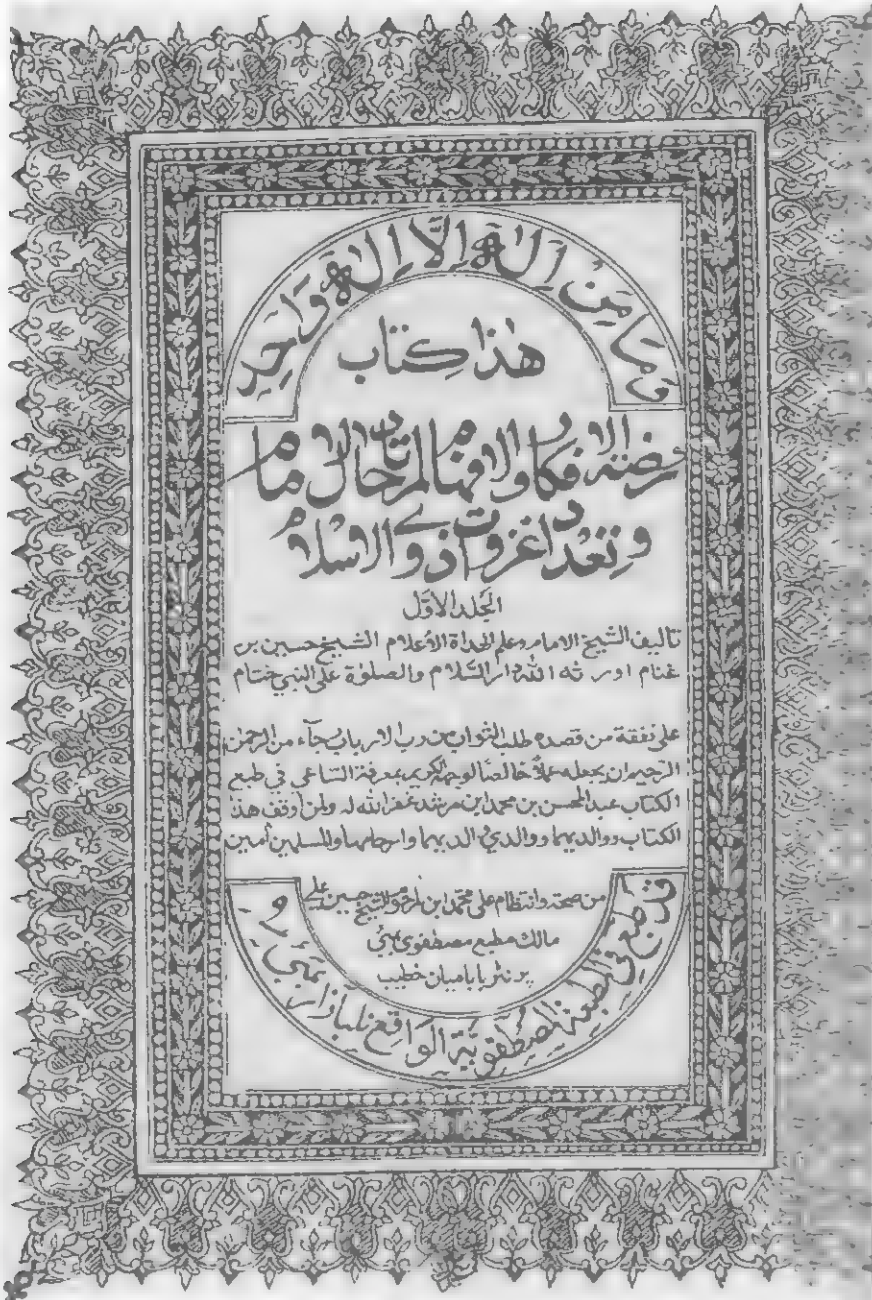 وَمَا مِنْ اِلٰهٍ اِلَّا اِلٰهٌ وَاحِدٌ
هٰذا كِتاب
روضة الافكار والافهام لمرتاد حال الامام
وتعداد غزوات ذوي الاسلام
الجلد الاوّل
تاليف الشّيخ الامام وعلم الهداة الاعلام الشّيخ حسين بن
غنام اورثه الله دار السّلام والصلوة على النبي ختام
على نفقة من قصده طلب الثواب من رب الارباب رجآء من الرحمٰن
الرحيم ان يجعله عملا خالصًا لوجهه الكريم بمعرفة الساعى فى طبع
الكتاب عبد المحسن بن محمد ابن مرشد غفر الله له ولمن اوقف هذا
الكتاب ووالديهما ووالدي والديهما وارحامهما والمسلمين آمين
من صحة وانتظام على محمد ابن المرحوم الشيخ حسين على
مالك مطبع مصطفوى بمبئ
پرنٹر بابا ميان خطيب
قد طبع في المطبعة المصطفوية الواقع نلبازار بمبئ